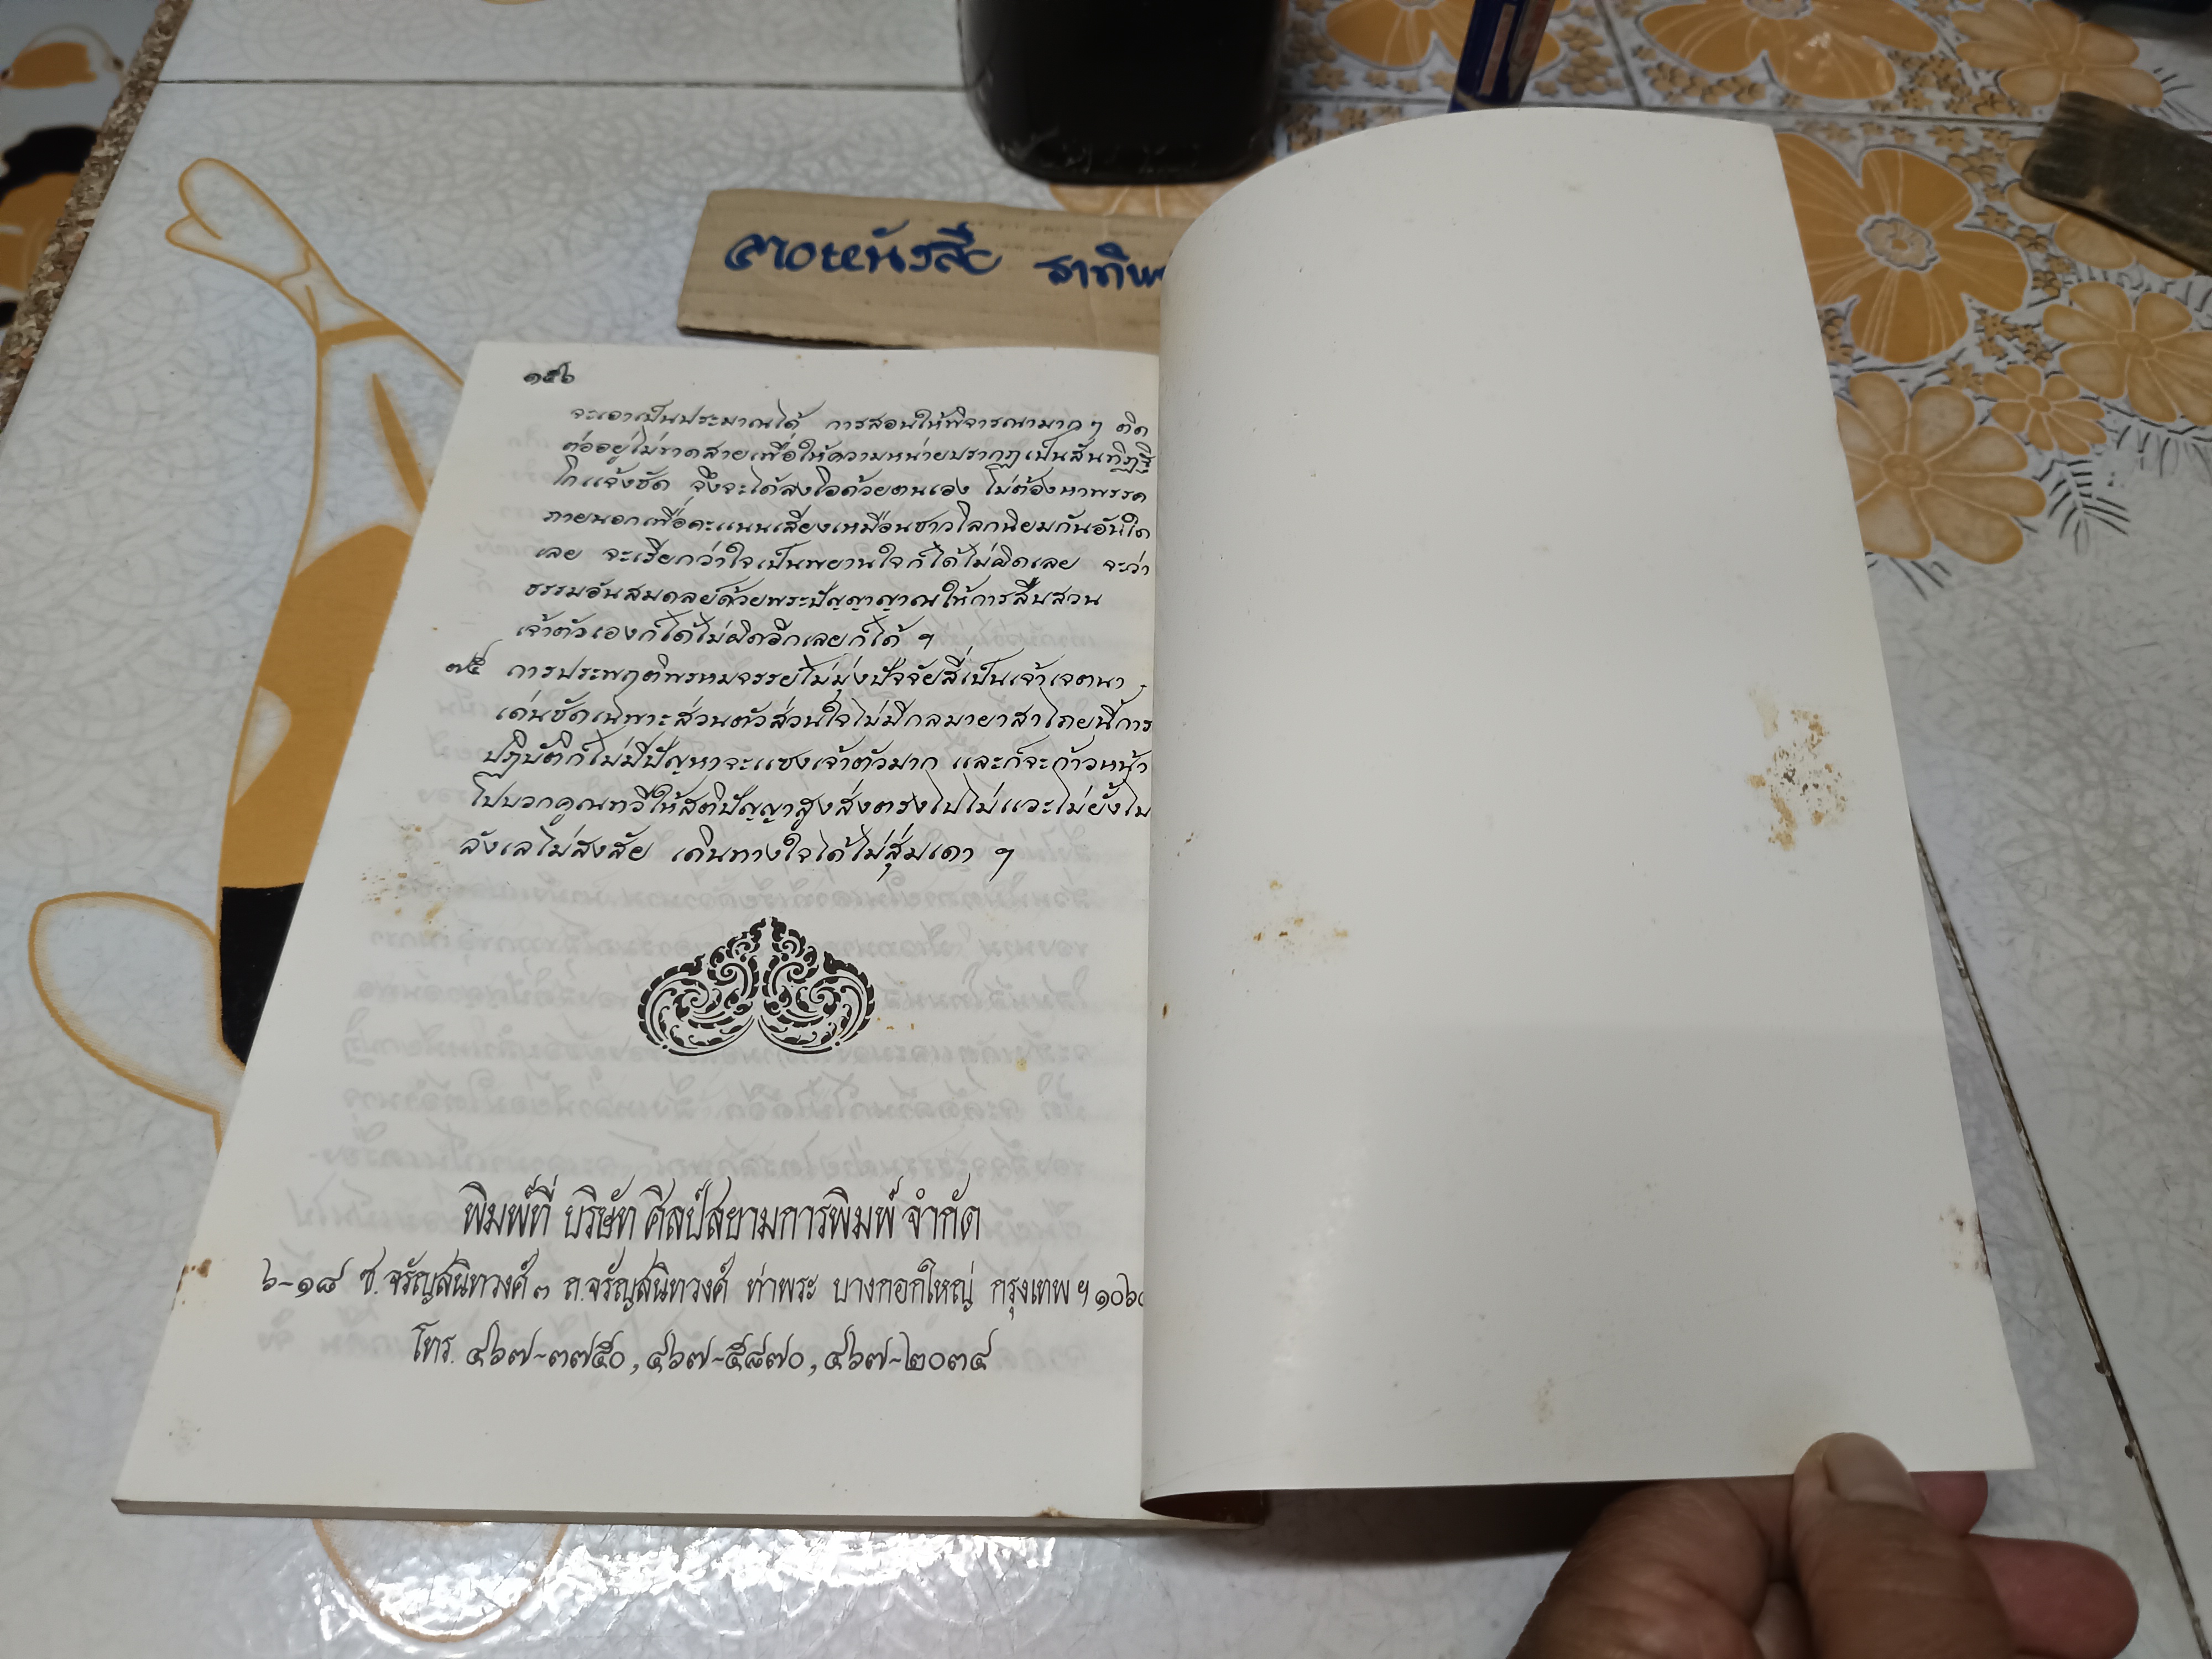 ลายหนังสือ
๑๕๖
จะเอาเป็นประมาณได้ การสอนให้พิจารณามาก ๆ ติด
ต่ออยู่ไม่ขาดสายเพื่อให้ความหน่ายปรากฏเป็นสันทิฏฐิ
โกแจ้งชัด จึงจะได้ลงใจด้วยตนเอง ไม่ต้องหาพรรค
ภายนอกเพื่อคะแนนเสียงเหมือนชาวโลกนิยมกันอันใด
เลย จะเรียกว่าใจเป็นพยานใจก็ได้ไม่ผิดเลย จะว่า
ธรรมอันสมดุลย์ด้วยพระปัญญาญาณให้การสืบสวน
เจ้าตัวเองก็ได้ไม่ผิดอีกเลยก็ได้ ฯ
๗๕ การประพฤติพรหมจรรย์ไม่มุ่งปัจจัยสี่เป็นเจ้าเจตนา
เด่นชัดเฉพาะส่วนตัวส่วนใจไม่มีกลมายาสาไถยนี้การ
ปฏิบัติก็ไม่มีปัญหาจะแซงเจ้าตัวมาก และก็จะก้าวหน้า
ไปบวกคูณทวีให้สติปัญญาสูงส่งตรงไปไม่แวะไม่ยั้งไม่
ลังเลไม่สงสัย เดินทางใจได้ไม่สุ่มเดา ฯ
พิมพ์ที่ บริษัท ศิลป์สยามการพิมพ์ จำกัด
๖-๑๘ ซ.จรัญสนิทวงศ์ ๓ ถ.จรัญสนิทวงศ์ ท่าพระ บางกอกใหญ่ กรุงเทพ ฯ ๑๐๖๐
โทร. ๔๖๗-๓๗๕๐, ๔๖๗-๕๘๗๐, ๔๖๗-๒๐๓๔